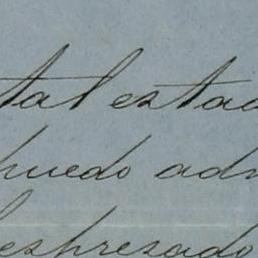 tal estad
puedo adm
espresado